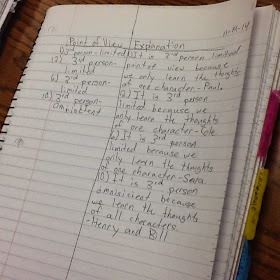 11-19-14
Point of View Explanation
person-limited It is 3rd person limited
3rd person- point of view because
limited we only learn the thoughts
3rd person- of one character-Paul.
limited It is 3rd person
3rd person- limited because we
omniscient only learn the thoughts
of one character-Cole
It is 3rd person
limited because we
only learn the thoughts
of one character-Sara
It is 3rd person
omniscient because
we learn the thoughts
of all characters.
-Henry and Bill